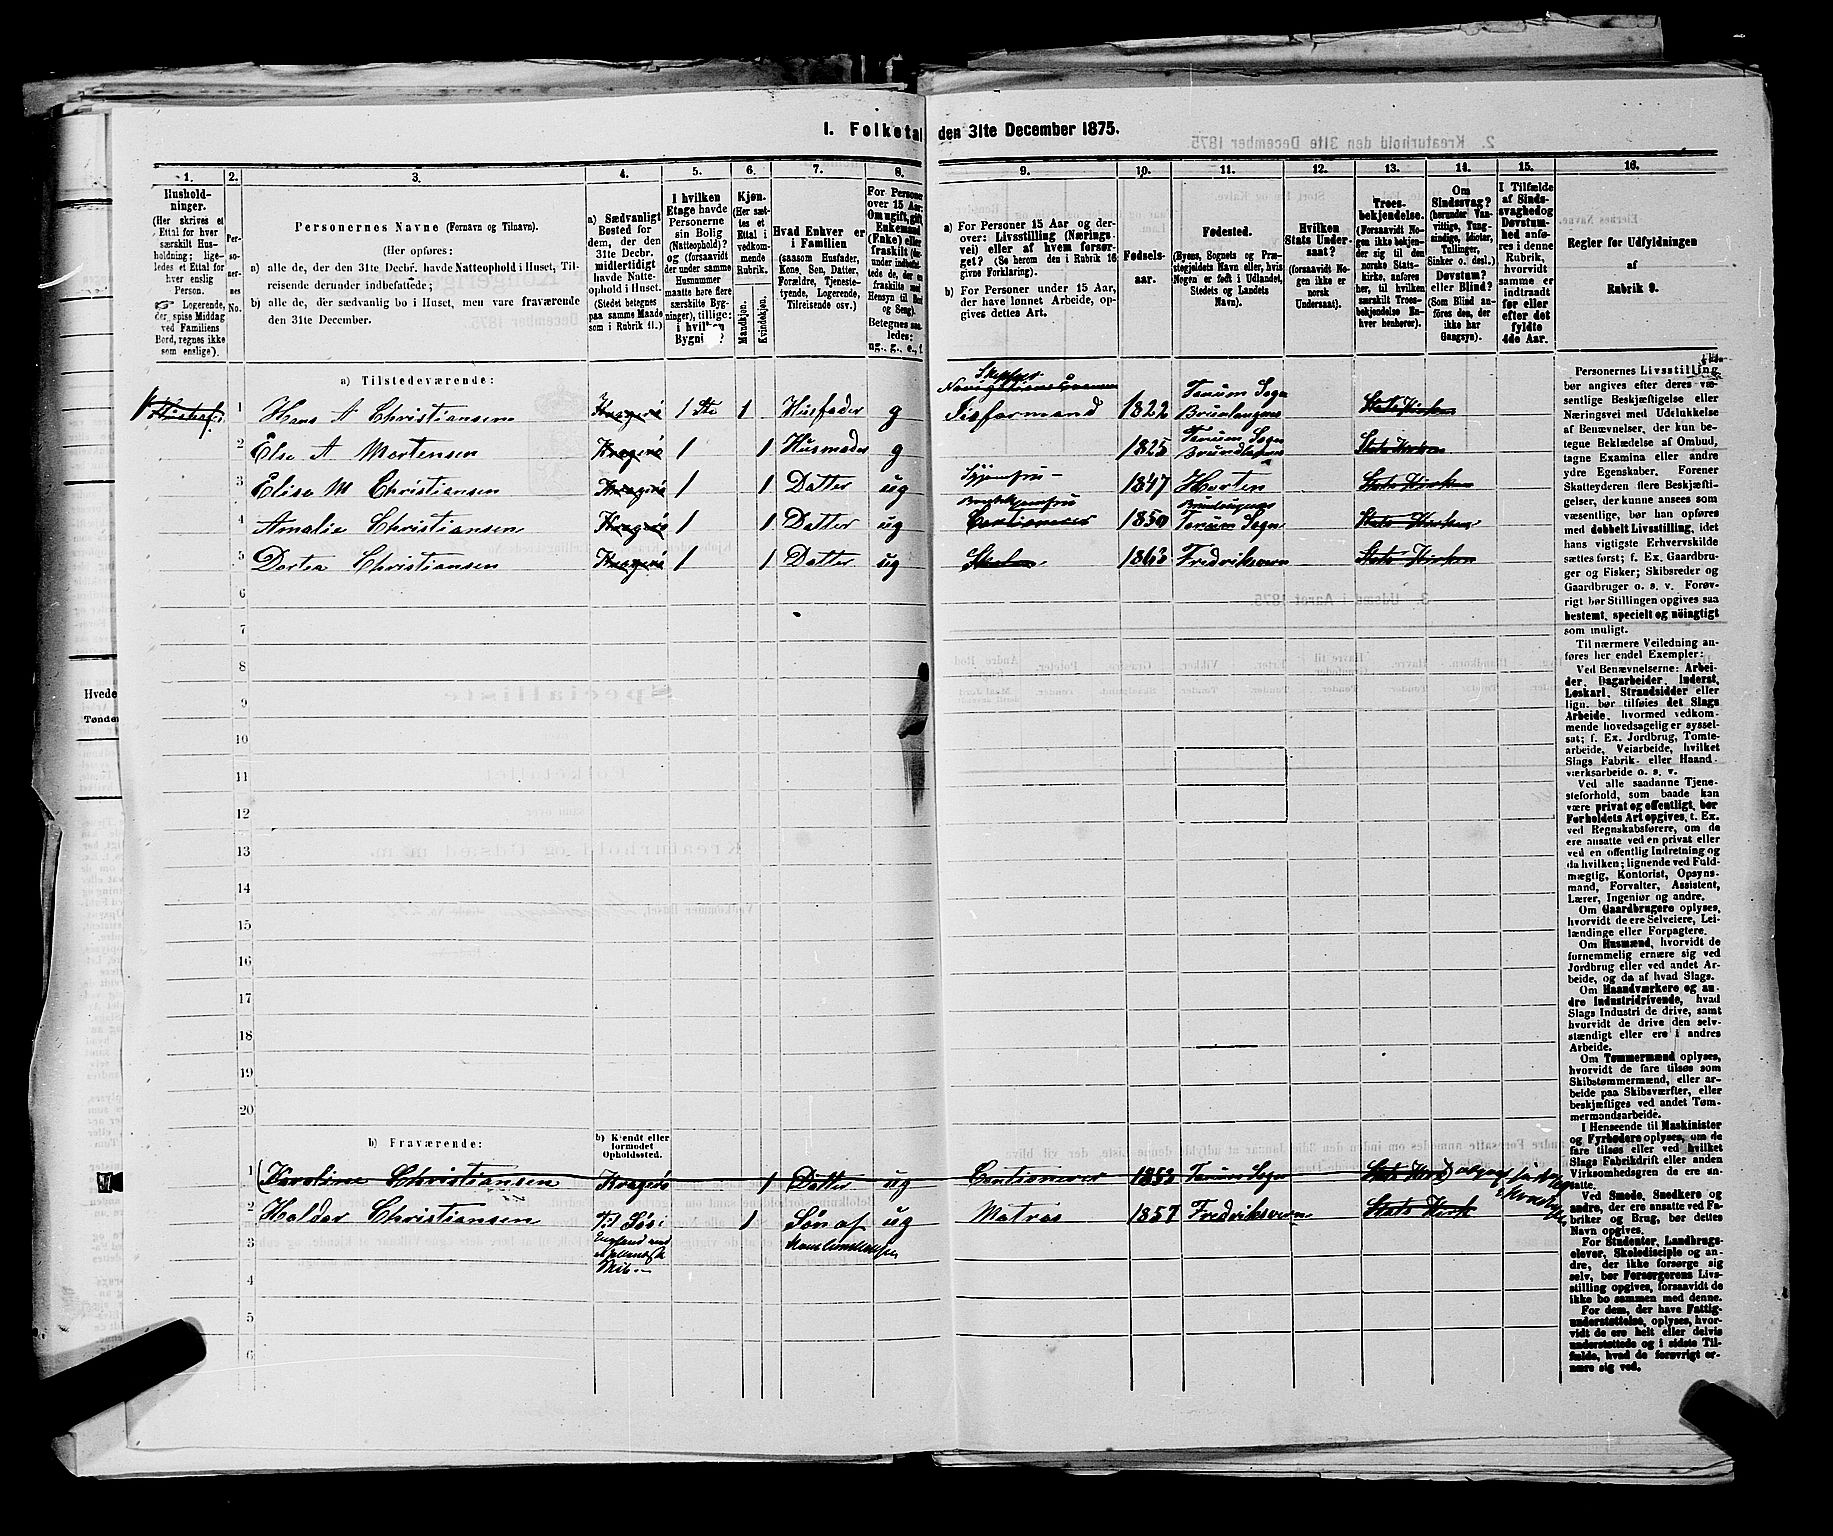 I. Folketal den 31te December 1875.
2. Kreaturhold den 31te December 1875
1. 2. 3. 4. 5. 6. 7. 8. 9. 10. 11. 12. 13. 14. 15. 16.
Hushold-
ninger.
(Her skrives et
Ettal for hver
særskilt Hus-
holdning; lige-
ledes et Ettal for
hver enslig
Person.
Logerende,
der spise Middag
ved Familiens
Bord, regnes ikke
som enslige).
Per-
so-
ner-
nes
No.
Personernes Navne (Fornavn og Tilnavn).
(Her opføres:
a) alle de, der den 31te Decbr. havde Natteophold i Huset, Til-
reisende derunder indbefattede;
b) alle de, der sædvanlig bo i Huset, men vare fraværende
den 31te December.
a) Sædvanligt
Bosted for
dem, der den
31te Decbr.
midlertidigt
havde Natte-
ophold i Huset.
(Stedet betegnes
paa samme Maade
som i Rubrik 11.)
I hvilken
Etage havde
Personerne
sin Bolig
(Natteophold)?
og (forsaavidt
der under samme
Husnummer
maatte høre flere
særskilte Byg-
ninger), tillige:
i hvilken
Bygning?
Kjøn.
(Her sæt-
tes et
Ettal i
vedkom-
mende
Rubrik.
Mandkjøn.
Kvindekjøn.
Hvad Enhver er
i Familien
(saasom Husfader,
Kone, Søn, Datter,
Forældre, Tjeneste-
tyende, Logerende,
Tilreisende osv.)
For Personer
over 15 Aar:
Om ugift, gift,
Enkemand
(Enke) eller
fraskilt
Betegnes saa-
ledes:
ug., g., e., f.
a) For Personer 15 Aar og der-
over: Livsstilling (Nærings-
vei) eller af hvem forsør-
get? (Se herom den i Rubrik 16
givne Forklaring).
b) For Personer under 15 Aar,
der have lønnet Arbeide, op-
gives dettes Art.
Fødsels-
aar.
Fødested.
(Byens, Sognets og Præ-
stegjeldets Navn eller, hvis
Nogen er født i Udlandet,
Stedets og Landets
Navn).
Hvilken
Stats Under-
saat?
(forsaavidt No-
gen ikke er
norsk
Undersaat).
Troes-
bekjendelse.
(Forsaavidt No-
gen ikke bekjen-
der sig til den
norske Stats-
kirke, anføres
her, til hvilken
særskilt Troes-
bekjendelse En-
hver henhører).
Om
Sindssvag?
(herunder Van-
vittige, Tung-
sindige, Idioter,
Tullinger,
Sinker o. desl.).
Døvstum?
eller Blind?
(Som Blind an-
føres den, der
ikke har
Gangsyn).
I Tilfælde
af Sinds-
svaghed og
Døvstum-
hed anfø-
res i denne
Rubrik,
hvorvidt
samme er
indtraadt
før eller
efter det
fyldte
4de Aar.
Regler for Udfyldningen
af
Rubrik 9.
a) Tilstedeværende:
Skippers
1 Hans A Christiansen Kragerö 1 Ste 1 Husfader g Disformand 1822 Tanum Sogn Brunlaugnes Stats Kirken
2 Else A Mortensen Kragerö 1 1 Husmoder g 1825 Tanum Sogn Brundlagnes Stats Kirken
3 Elise M Christiansen Kragerö 1 1 Datter ug Syjomfru 1847 Horten Stats Kirken
4 Amalie Christiansen Kragerö 1 1 Datter ug 1850 Tanum Sogn Stats Kirken
5 Dortea Christiansen Kragerö 1 1 Datter ug 1863 Fredriksvern Stats Kirken
6
7
8
9
10
11
12
13
14
15
16
17
18
19
20
b) Fraværende:
b) Kjendt eller
formodet
Opholdssted.
1 Karoline Christiansen Kragerö 1 Datter ug Contionever 1853 Tanum Sogn Stats Kirk
2 Haldor Christiansen Til Søs i England med Skib 1 Søn af ug Matros 1857 Fredriksvern Stats Kirk
3
4
5
6
Personernes Livsstilling
bør angives efter deres væ-
sentlige Beskjæftigelse eller
Næringsvei med Udelukkelse
af Benævnelser, der kun be-
tegne Beklædelse af Ombud,
tagne Examina eller andre
ydre Egenskaber. Forener
Skatteyderen flere Beskjæfti-
gelser, der kunne ansees som
væsentlige, bør han opføres
med dobbelt Livsstilling, idet
hans vigtigste Erhvervskilde
sættes først; f. Ex. Gaardbru-
ger og Fisker; Skibsreder og
Gaardbruger o. s. v. Forøv-
rigt bør Stillingen opgives saa
bestemt, specielt og nöiagtigt
som muligt.
Til nærmere Veiledning an-
føres her endel Exempler:
Ved Benævnelserne: Arbei-
der, Dagarbeider, Inderst,
Løskarl, Strandsidder eller
lign. bør tilføies det Slags
Arbeide, hvormed vedkom-
mende hovedsagelig er syssel-
sat; f. Ex. Jordbrug, Tomte-
arbeide, Veiarbeide, hvilket
Slags Fabrik- eller Haand-
værksarbeide o. s. v.
Ved alle saadanne Tjene-
steforhold, som baade kan
være privat og offentligt, bør
Forholdets Art opgives, t. Ex.
ved Regnskabsførere, om de
ere ansatte ved en privat eller
ved en offentlig Indretning og
da hvilken; lignende ved Fuld-
mægtig, Kontorist, Opsyns-
mand, Forvalter, Assistent,
Lærer, Ingeniør og andre.
Om Gaardbrugere oplyses,
hvorvidt de ere Selveiere, Lei-
lændinge eller Forpagtere.
Om Husmænd, hvorvidt de
fornemmelig ernære sig ved
Jordbrug eller ved andet Ar-
beide, og da af hvad Slags.
Om Haandværkere og an-
dre Industridrivende, hvad
Slags Industri de drive, samt
hvorvidt de drive den selv-
stændigt eller ere i andres
Arbeide.
Om Tømmermænd oplyses,
hvorvidt de fare tilsøs som
Skibstømmermænd, eller ar-
beide paa Skibsværfter, eller
beskjæftiges ved andet Tøm-
mermandsarbeide.
I Henseende til Maskinister
og Fyrbødere oplyses, om de
fare tilsøs eller ved hvilket
Slags Fabrikdrift eller anden
Virksomhedsgren de ere an-
satte.
Ved Smede, Snedkere og
andre, der ere ansatte ved Fa-
briker og Brug, bør dettes
Navn opgives.
For Studenter, Landbrugs-
elever, Skoledisciple og an-
dre, der ikke forsørge sig
selv, bør Forsørgerens Livs-
stilling opgives, forsaavidt de
ikke bo sammen med denne.
For dem, der have Fattig-
understøttelse, oplyses, hvor-
vidt de ere helt eller delvis
understøttede og i sidste Til-
fælde, hvad de forøvrigt er-
nære sig ved.
Hvede
Tønder